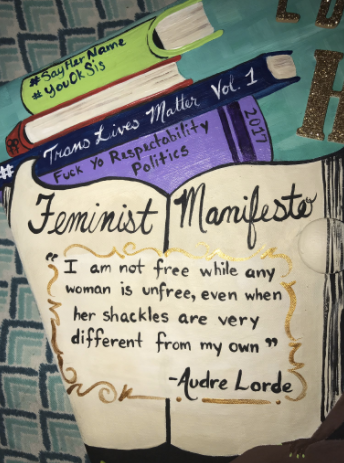 #SayHerName
#YouOkSis
# Trans Lives Matter Vol. 1
2017
Fuck Yo Respectability
Politics
Feminist Manifesto
"I am not free while any
woman is unfree, even when
her shackles are very
different from my own"
-Audre Lorde